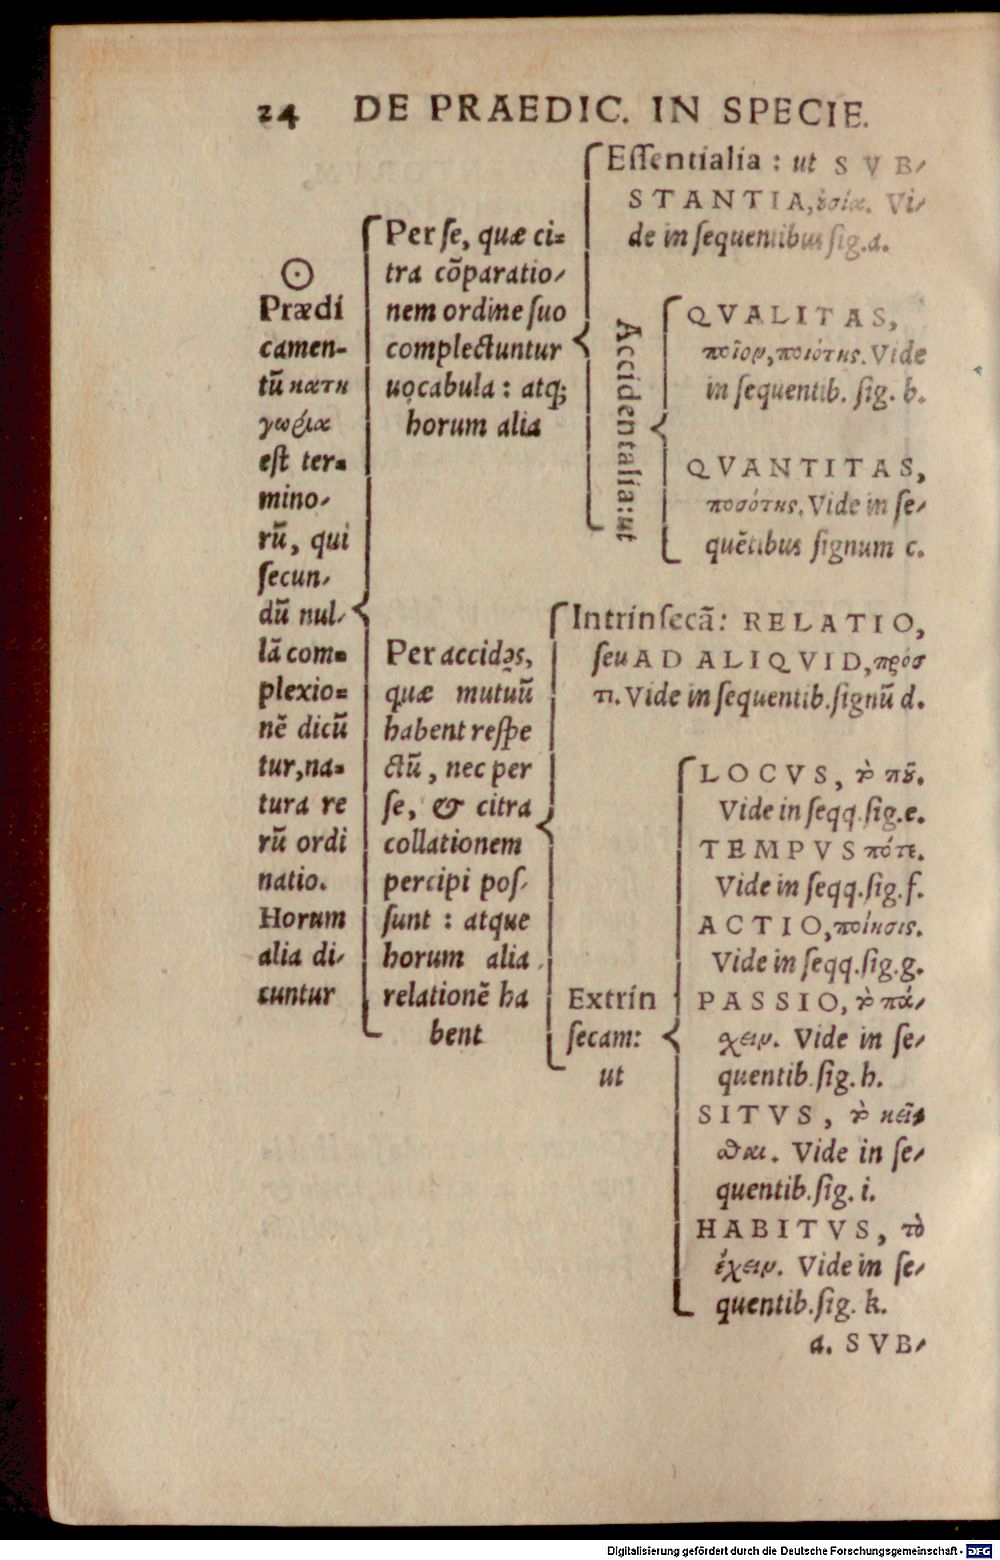 24 DE PRAEDIC. IN SPECIE.
☉
Prædi
camen-
tū κατη
γορία
est ter-
mino-
rū, qui
secun-
dū nul-
lā com-
plexio-
nē dicū
tur, na-
tura re
rū ordi
natio.
Horum
alia di-
cuntur
Per se, quæ ci-
tra cōparatio-
nem ordine suo
complectuntur
uocabula : atq;
horum alia
Essentialia : ut SVB-
STANTIA, ὀσία. Vi-
de in sequentibus sig. a.
Accidentalia: ut
QVALITAS,
ποῖον, ποιότης. Vide
in sequentib. sig. b.
QVANTITAS,
ποσότης. Vide in se-
quētibus signum c.
Per accidēs,
quæ mutuū
habent respe
ctū, nec per
se, & citra
collationem
percipi pos-
sunt : atque
horum alia
relationē ha
bent
Intrinsecā: RELATIO,
seu AD ALIQVID, πρός
τι. Vide in sequentib. signū d.
Extrin
secam:
ut
LOCVS, τὸ πȣ͂.
Vide in seqq. sig. e.
TEMPVS πότε.
Vide in seqq. sig. f.
ACTIO, ποίησις.
Vide in seqq. sig. g.
PASSIO, τὸ πά-
χειν. Vide in se-
quentib. sig. h.
SITVS, τὸ κεῖ-
σθαι. Vide in se-
quentib. sig. i.
HABITVS, τὸ
ἔχειν. Vide in se-
quentib. sig. k.
a. SVB-
Digitalisierung gefördert durch die Deutsche Forschungsgemeinschaft - DFG